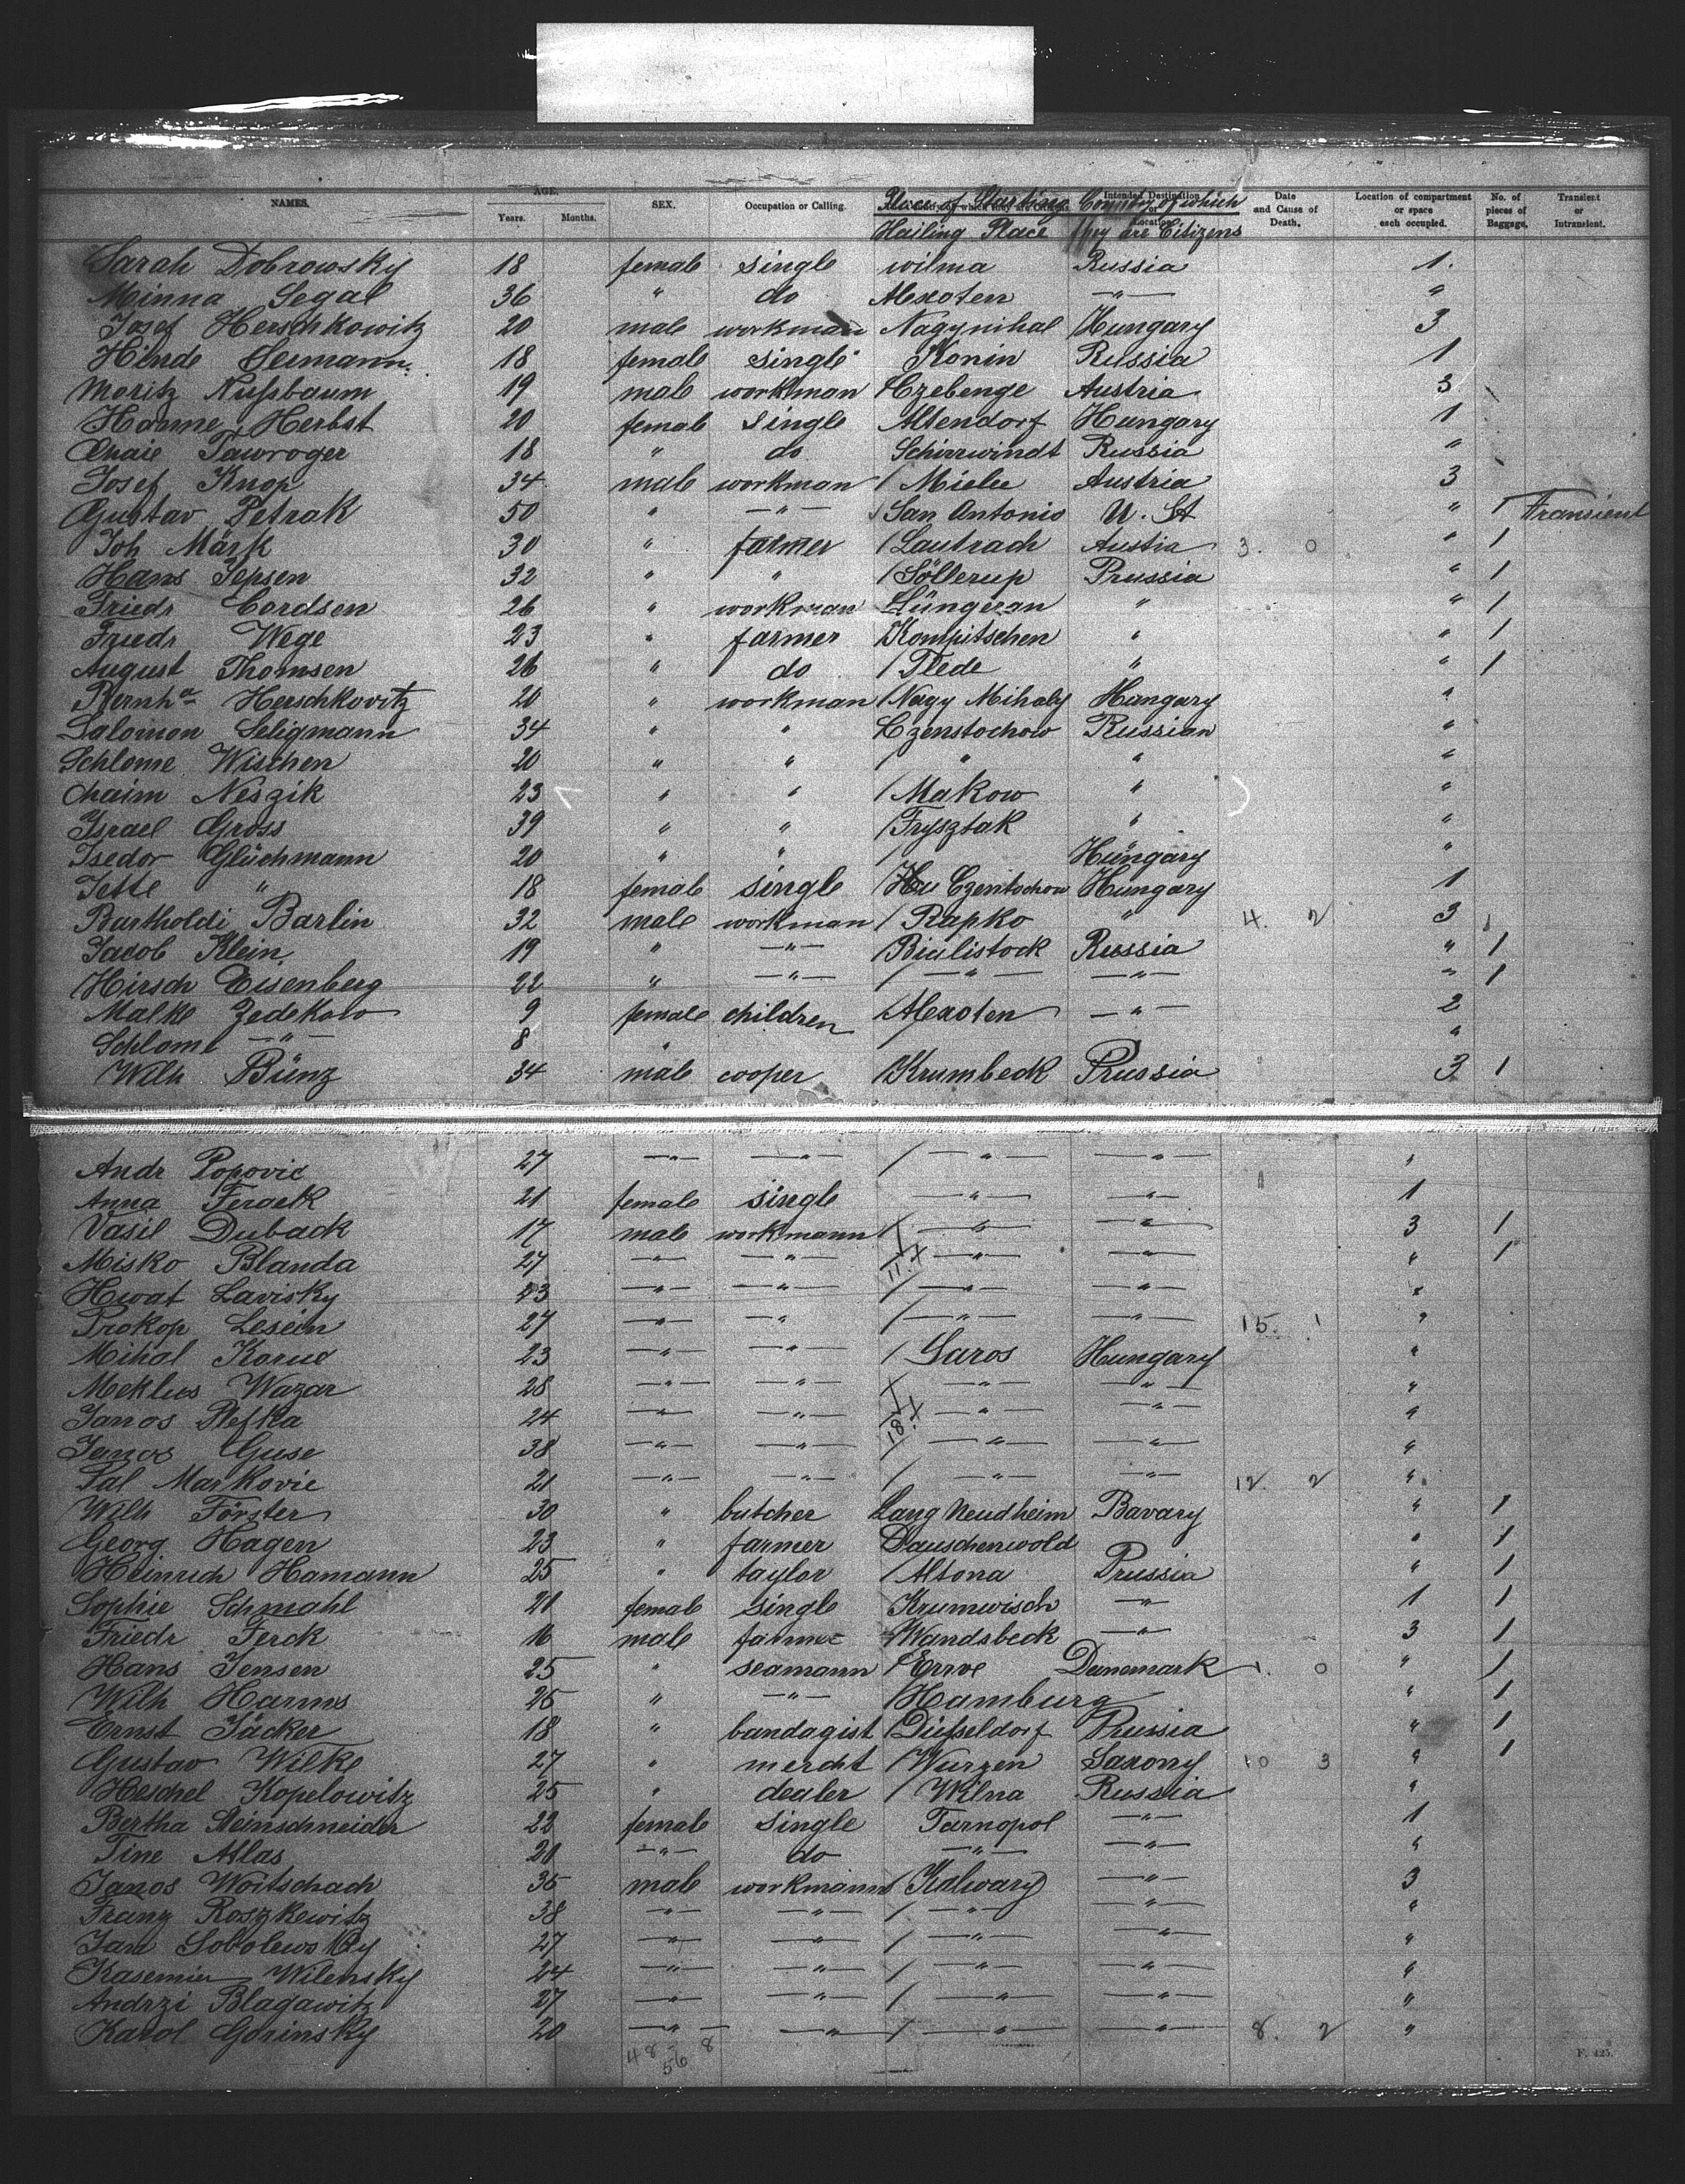 NAMES. AGE. Years. Months. SEX. Occupation or Calling. Place of Starting Hailing Place Country of which they are Citizens Intended Destination or Location Date and Cause of Death. Location of compartment or space each occupied. No. of pieces of Baggage. Transient or Intransient.
Sarah Dobrowsky 18 female single wilma Russia 1.
Minna Segal 36 " do Mexoten —"— "
Josef Herschkowitz 20 male workman Nagynihal Hungary 3
Hinde 18 female single Konin Russia 1
Moritz Nußbaum 19 male workman Czebenge Austria 3
Hanne Herbst 20 female single Altendorf Hungary 1
Chaie Tawroger 18 " do Schirrwindt Russia "
Josef Knop 34 male workman / Mielec Austria 3
Gustav Petrak 50 " —"— San Antonio U. St " 1 Transient
Joh Märk 30 " farmer / Lautrach Austia 3. 0 " 1
Hans Jepsen 32 " " / Söllerup Prussia " 1
Friedr Cordsen 26 " workman " " 1
Friedr Wege 23 " farmer Kompitschen " " 1
August Thomsen 26 " do / " " 1
Bernhd Herschkovitz 20 " workman / Nagy Mihaly Hungary "
Salomon Seligmann 34 " " Czenstochow Russian "
Schlome Wischen 20 " " / " " "
Chaim Neszik 23 " " / Makow " "
Israel Gross 39 " " / Frysztak " "
Isedor Glüchmann 20 " " / Hungary "
Jette " 18 female single Czentochow Hungary 1
Bartholdi Barlin 32 male workman / Rapko " 4. 2 3 1
Jacob Klein 19 " —"— / Bialistock Russia " 1
Hirsch Eisenberg 22 " —"— / —"— —"— " 1
Malke Zedekow 9 female children Mexoten —"— 2
Schlome —"— 8 " / "
Wilh Bünz 34 male cooper / Krumbeck Prussia 3 1
Andr Popovic 27 —"— —"— / —"— —"— "
Anna 21 female single —"— —"— 1
Vasil Duback 17 male workmann / —"— —"— 3 1
Misko Blanda 27 —"— —"— 11.X —"— —"— " 1
Hwat Lavisky 23 —"— —"— / —"— —"— "
Prokop Lesein 27 —"— —"— / —"— —"— 15. 1 "
Mihal 23 —"— —"— / Saros Hungary "
Meklus Wazar 28 —"— —"— / —"— —"— "
Janos Stefka 24 —"— —"— 18.X —"— —"— "
Janos Guse 38 —"— —"— / —"— —"— "
Pal Markovic 21 —"— —"— / —"— —"— 12 2 "
Wilh Förster 30 " butcher Lang Neudheim Bavary " 1
Georg Hagen 23 " farmer Dauschenwold " 1
Heinrich Hamann 25 " taylor / Altona Prussia " 1
Sophie Schmahl 21 female single Krumwisch —"— 1 1
Friedr Ferck 16 male farmer Wandsbeck —"— 3 1
Hans Jensen 25 " seamann / Errve Danemark 1. 0 " 1
Wilh Harms 26 " —"— / Hamburg " 1
Ernst Jäcker 18 " bandagist / Düsseldorf Prussia " 1
Gustav Wilke 27 " mercht / Wurzen Saxony 10 3 " 1
Heschel Kopelowitz 25 " dealer / Wilna Russia "
Bertha Steinschneider 22 female single Tarnopol —"— 1
Tine Atlas 21 —"— do —"— —"— "
Janos Woitschach 35 male workmann / Kalwary —"— 3
Franz Roszkewitz 38 —"— —"— / —"— —"— "
Jan Sobolewsky 27 —"— —"— / —"— —"— "
Kasemier Wilensky 24 —"— —"— / —"— —"— "
Andrzi Blagawitz 27 —"— —"— / —"— —"— "
Karol Gorinsky 20 —"— —"— / —"— —"— 8. 2 "
48 - 8
56
F. 425.